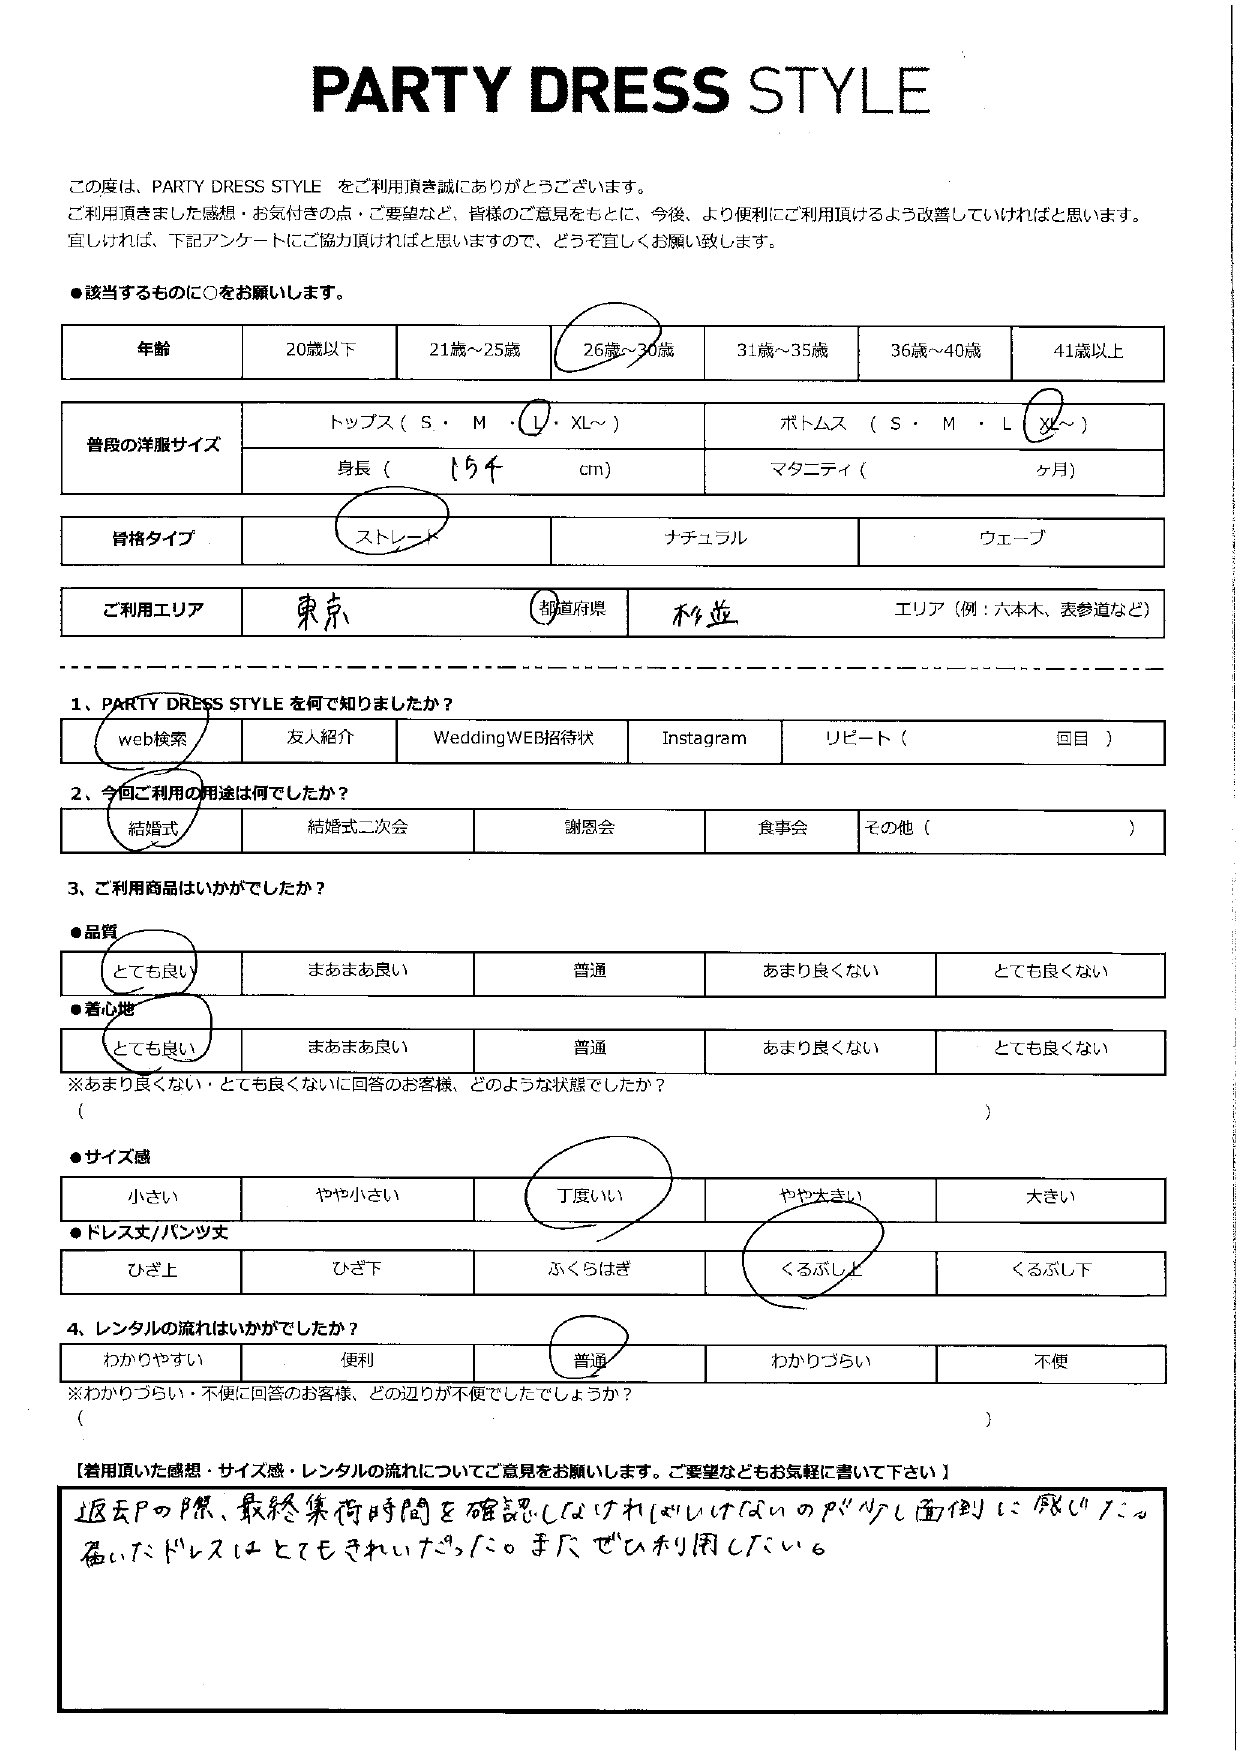 PARTY DRESS STYLE
この度は、PARTY DRESS STYLE をご利用頂き誠にありがとうございます。
ご利用頂きました感想・お気付きの点・ご要望など、皆様のご意見をもとに、今後、より便利にご利用頂けるよう改善していければと思います。
宜しければ、下記アンケートにご協力頂ければと思いますので、どうぞ宜しくお願い致します。
●該当するものに○をお願いします。
年齢 20歳以下 21歳～25歳 26歳～30歳 31歳～35歳 36歳～40歳 41歳以上
普段の洋服サイズ トップス ( S ・ M ・ L ・ XL～ ) ボトムス ( S ・ M ・ L ( XL～ )
身長 ( 154 cm) マタニティ ( ヶ月)
骨格タイプ ストレート ナチュラル ウェーブ
ご利用エリア 東京 都道府県 杉並 エリア（例：六本木、表参道など）
1、PARTY DRESS STYLE を何で知りましたか？
web検索 友人紹介 WeddingWEB招待状 Instagram リピート ( 回目 )
2、今回ご利用の用途は何でしたか？
結婚式 結婚式二次会 謝恩会 食事会 その他 ( )
3、ご利用商品はいかがでしたか？
●品質
とても良い まあまあ良い 普通 あまり良くない とても良くない
●着心地
とても良い まあまあ良い 普通 あまり良くない とても良くない
※あまり良くない・とても良くないに回答のお客様、どのような状態でしたか？
( )
●サイズ感
小さい やや小さい 丁度いい やや大きい 大きい
●ドレス丈/パンツ丈
ひざ上 ひざ下 ふくらはぎ くるぶし上 くるぶし下
4、レンタルの流れはいかがでしたか？
わかりやすい 便利 普通 わかりづらい 不便
※わかりづらい・不便に回答のお客様、どの辺りが不便でしたでしょうか？
( )
【着用頂いた感想・サイズ感・レンタルの流れについてご意見をお願いします。ご要望などもお気軽に書いて下さい 】
返却の際、最終集荷時間を確認しなければいけないのが少し面倒に感じた。
届いたドレスはとてもきれいだった。またぜひ利用したい。